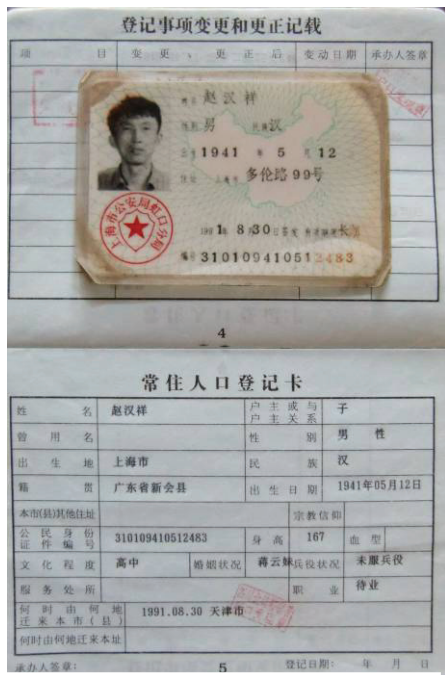 登记事项变更和更正记载
项 目 变 更 、 更 正 后 变动日期 承办人签章
姓名 赵汉祥
性别 男 民族 汉
出生 1941 年 5 月 12
住址 上海市 多伦路 99号
1991. 8 30 日签发 有效期限 长期
编号 310109410512483
上海市公安局虹口分局
4
常住人口登记卡
姓 名 赵汉祥 户主或与户主关系 子
曾 用 名 性 别 男 性
出 生 地 上海市 民 族 汉
籍 贯 广东省新会县 出 生 日 期 1941年05月12日
本市(县)其他住址 宗教信仰
公民身份证件编号 310109410512483 身 高 167 血 型
文 化 程 度 高中 婚姻状况 蒋云妹 兵役状况 未服兵役
服 务 处 所 职 业 待业
何时由何地迁来本市(县) 1991.08.30 天津市
何时由何地迁来本址
承办人签章: 5 登记日期: 年 月 日